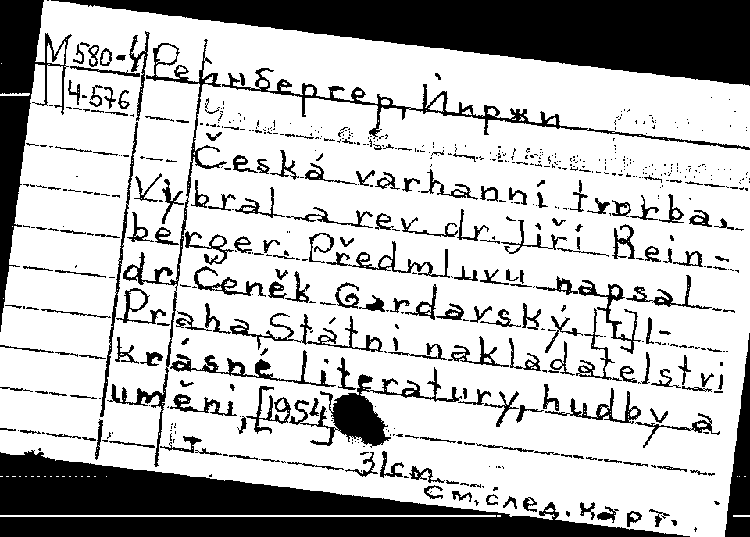 М 580-4 Рейнбергер, Йиржи
4-576
Česká varhanní tvorba.
Vybral a rev. dr. Jiří Rein-
berger. Předmluvu napsal
dr. Čeněk Gardavský. [T.] 1-
Praha, Státní nakladatelstvi
krásné literatury, hudby a
uměni, [1954]
т.
31см.
См. след. карт.